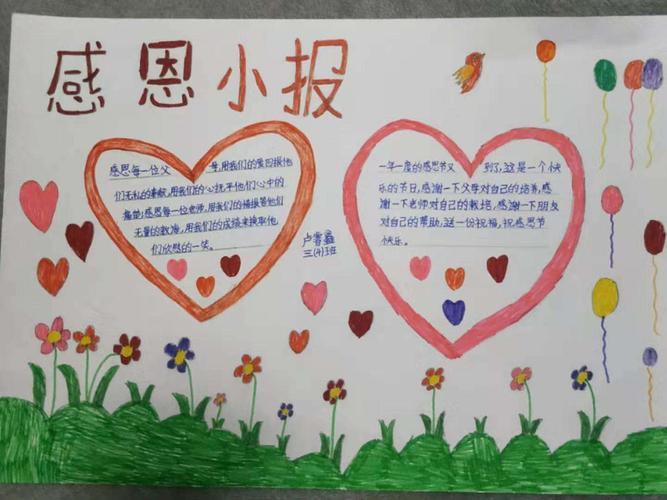 感恩小报
感恩每一位父 母,用我们的爱回报他
们无私的奉献,用我们的心抚平他们心中的
痛楚;感恩每一位老师,用我们的福报答他们
无量的教海,用我们的成绩来换取他
们欣慰的一笑。
卢睿
三(4)班
一年一度的感恩节又 到了,这是一个快
乐的节日,感谢一下父母对自己的培养,感
谢一下老师对自己的栽培,感谢一下朋友
对自己的帮助,送一份祝福,祝感恩节
快乐。